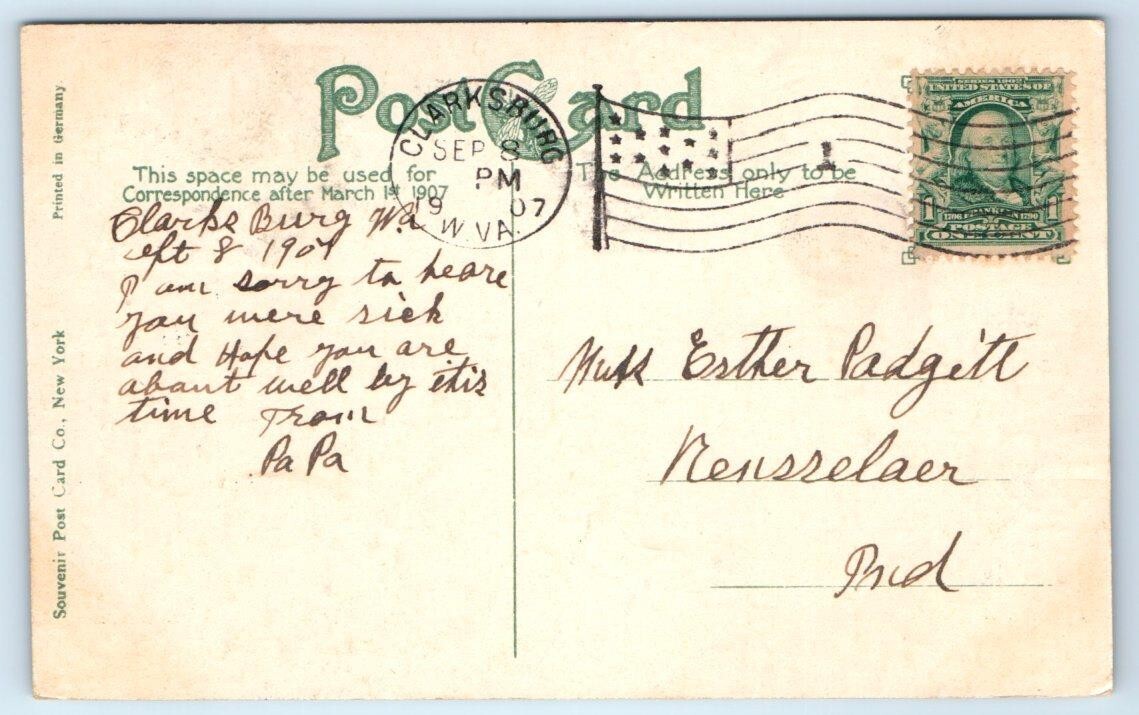 Post Card
This space may be used for
Correspondence after March 1st 1907
The Address only to be
Written Here
CLARKSBURG
SEP 8
PM
19 07
W. VA.
1
SERIES 1902
UNITED STATES OF
AMERICA
1706 FRANKLIN 1790
1 1
POSTAGE
ONE CENT
Clarks Burg W.a
ept 8 1907
I am sorry to heare
you were sick
and Hope you are
about well by this
time From
PaPa
Esther Padgitt
Rensselaer
Ind
Printed in Germany
Souvenir Post Card Co., New York